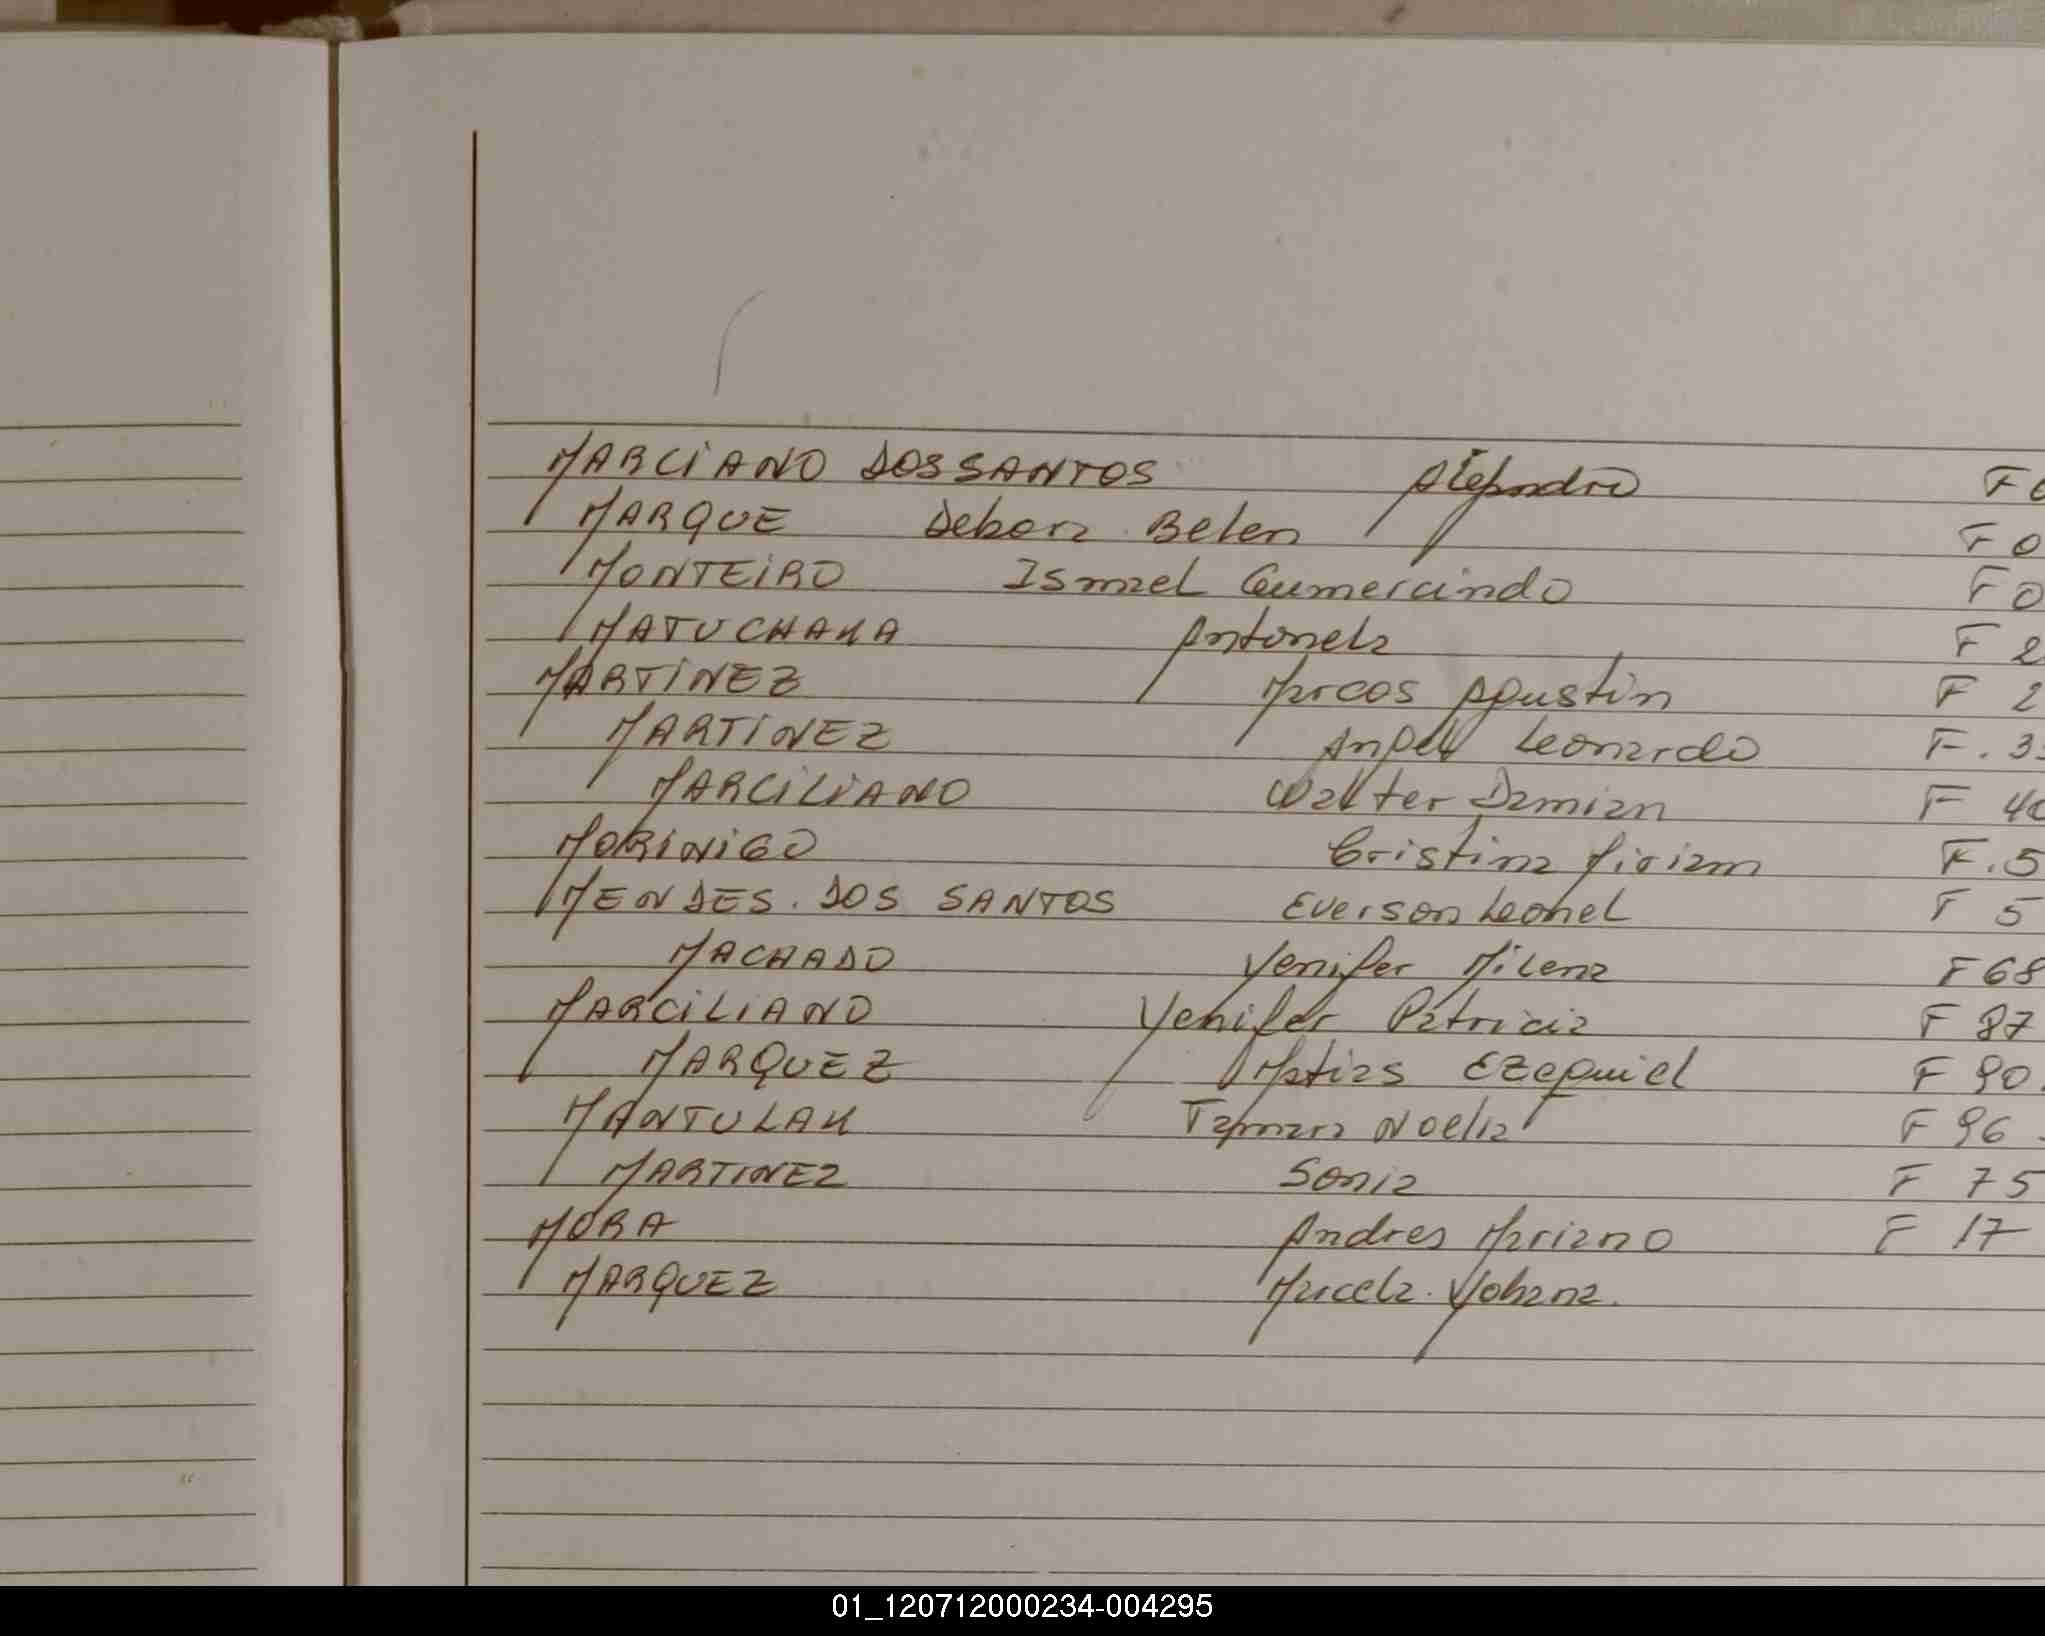 MARCIANO DOSSANTOS Alejandro F
MARQUE Debora Belen F 0
MONTEIRO Ismael Gumercindo F 0
MATUCHAKA Antonela F 2
MARTINEZ Marcos Agustin F 2
MARTINEZ Angel Leonardo F. 3
MARCILIANO Walter Damian F 4
MORINIGO Cristina Miriam F. 5
MENDES. DOS SANTOS Everson Leonel F 5
MACHADO Yenifer Milena F 68
MARCILIANO Yenifer Patricia F 87
MARQUEZ Matias Ezequiel F 90
MANTULAK Tamara Noelia F 96
MARTINEZ Sonia F 75
MORA Andres Mariano F 17
MARQUEZ Marcela. Yohana.
01_120712000234-004295